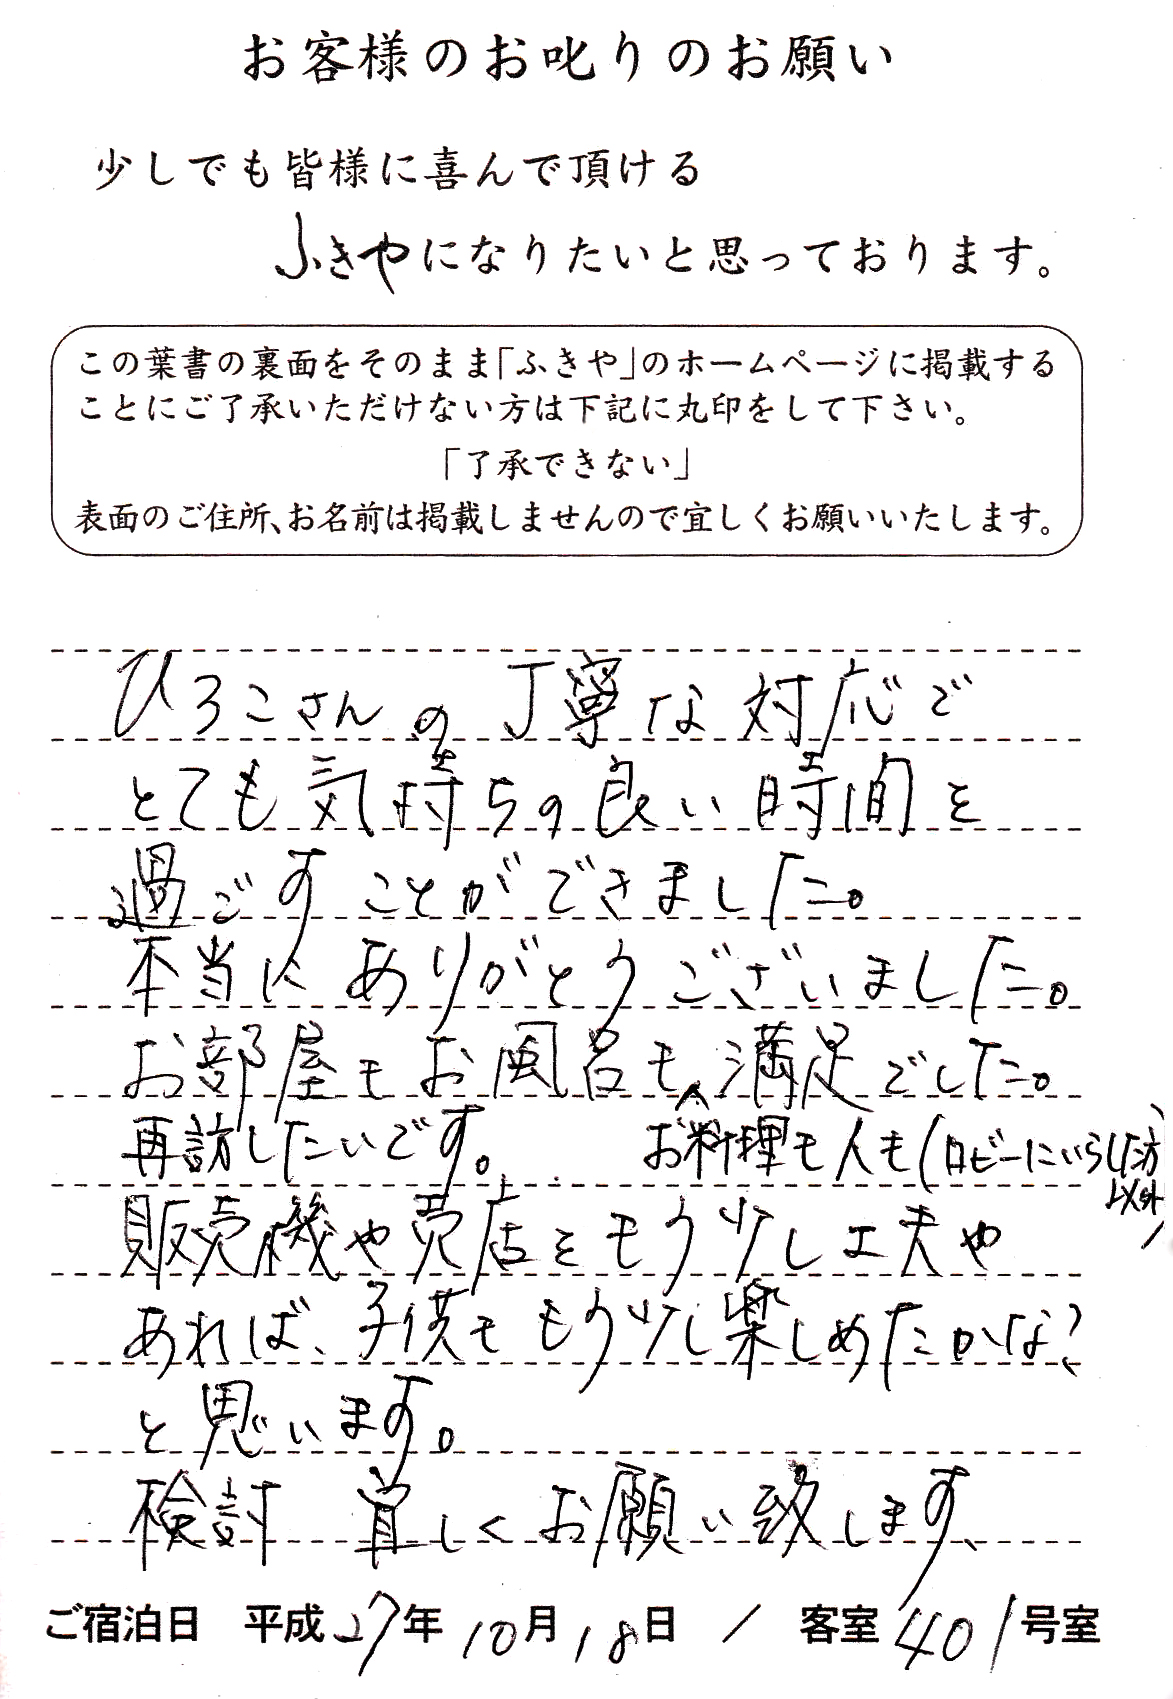 お客様のお叱りのお願い
少しでも皆様に喜んで頂ける
ふきやになりたいと思っております。
この葉書の裏面をそのまま「ふきや」のホームページに掲載する
ことにご了承いただけない方は下記に丸印をして下さい。
「了承できない」
表面のご住所、お名前は掲載しませんので宜しくお願いいたします。
ひろこさんの丁寧な対応で
とても気持ちの良い時間を
過ごすことができました。
本当にありがとうございました。
お部屋もお風呂も、満足でした。
再訪したいです。 お料理も人も(ロビーにいらした方
以外)
販売機や売店をもう少し工夫や
あれば、子供ももう少し楽しめたかな?
と思います。
検討 宜しくお願い致します、
ご宿泊日 平成27年10月18日 / 客室401号室